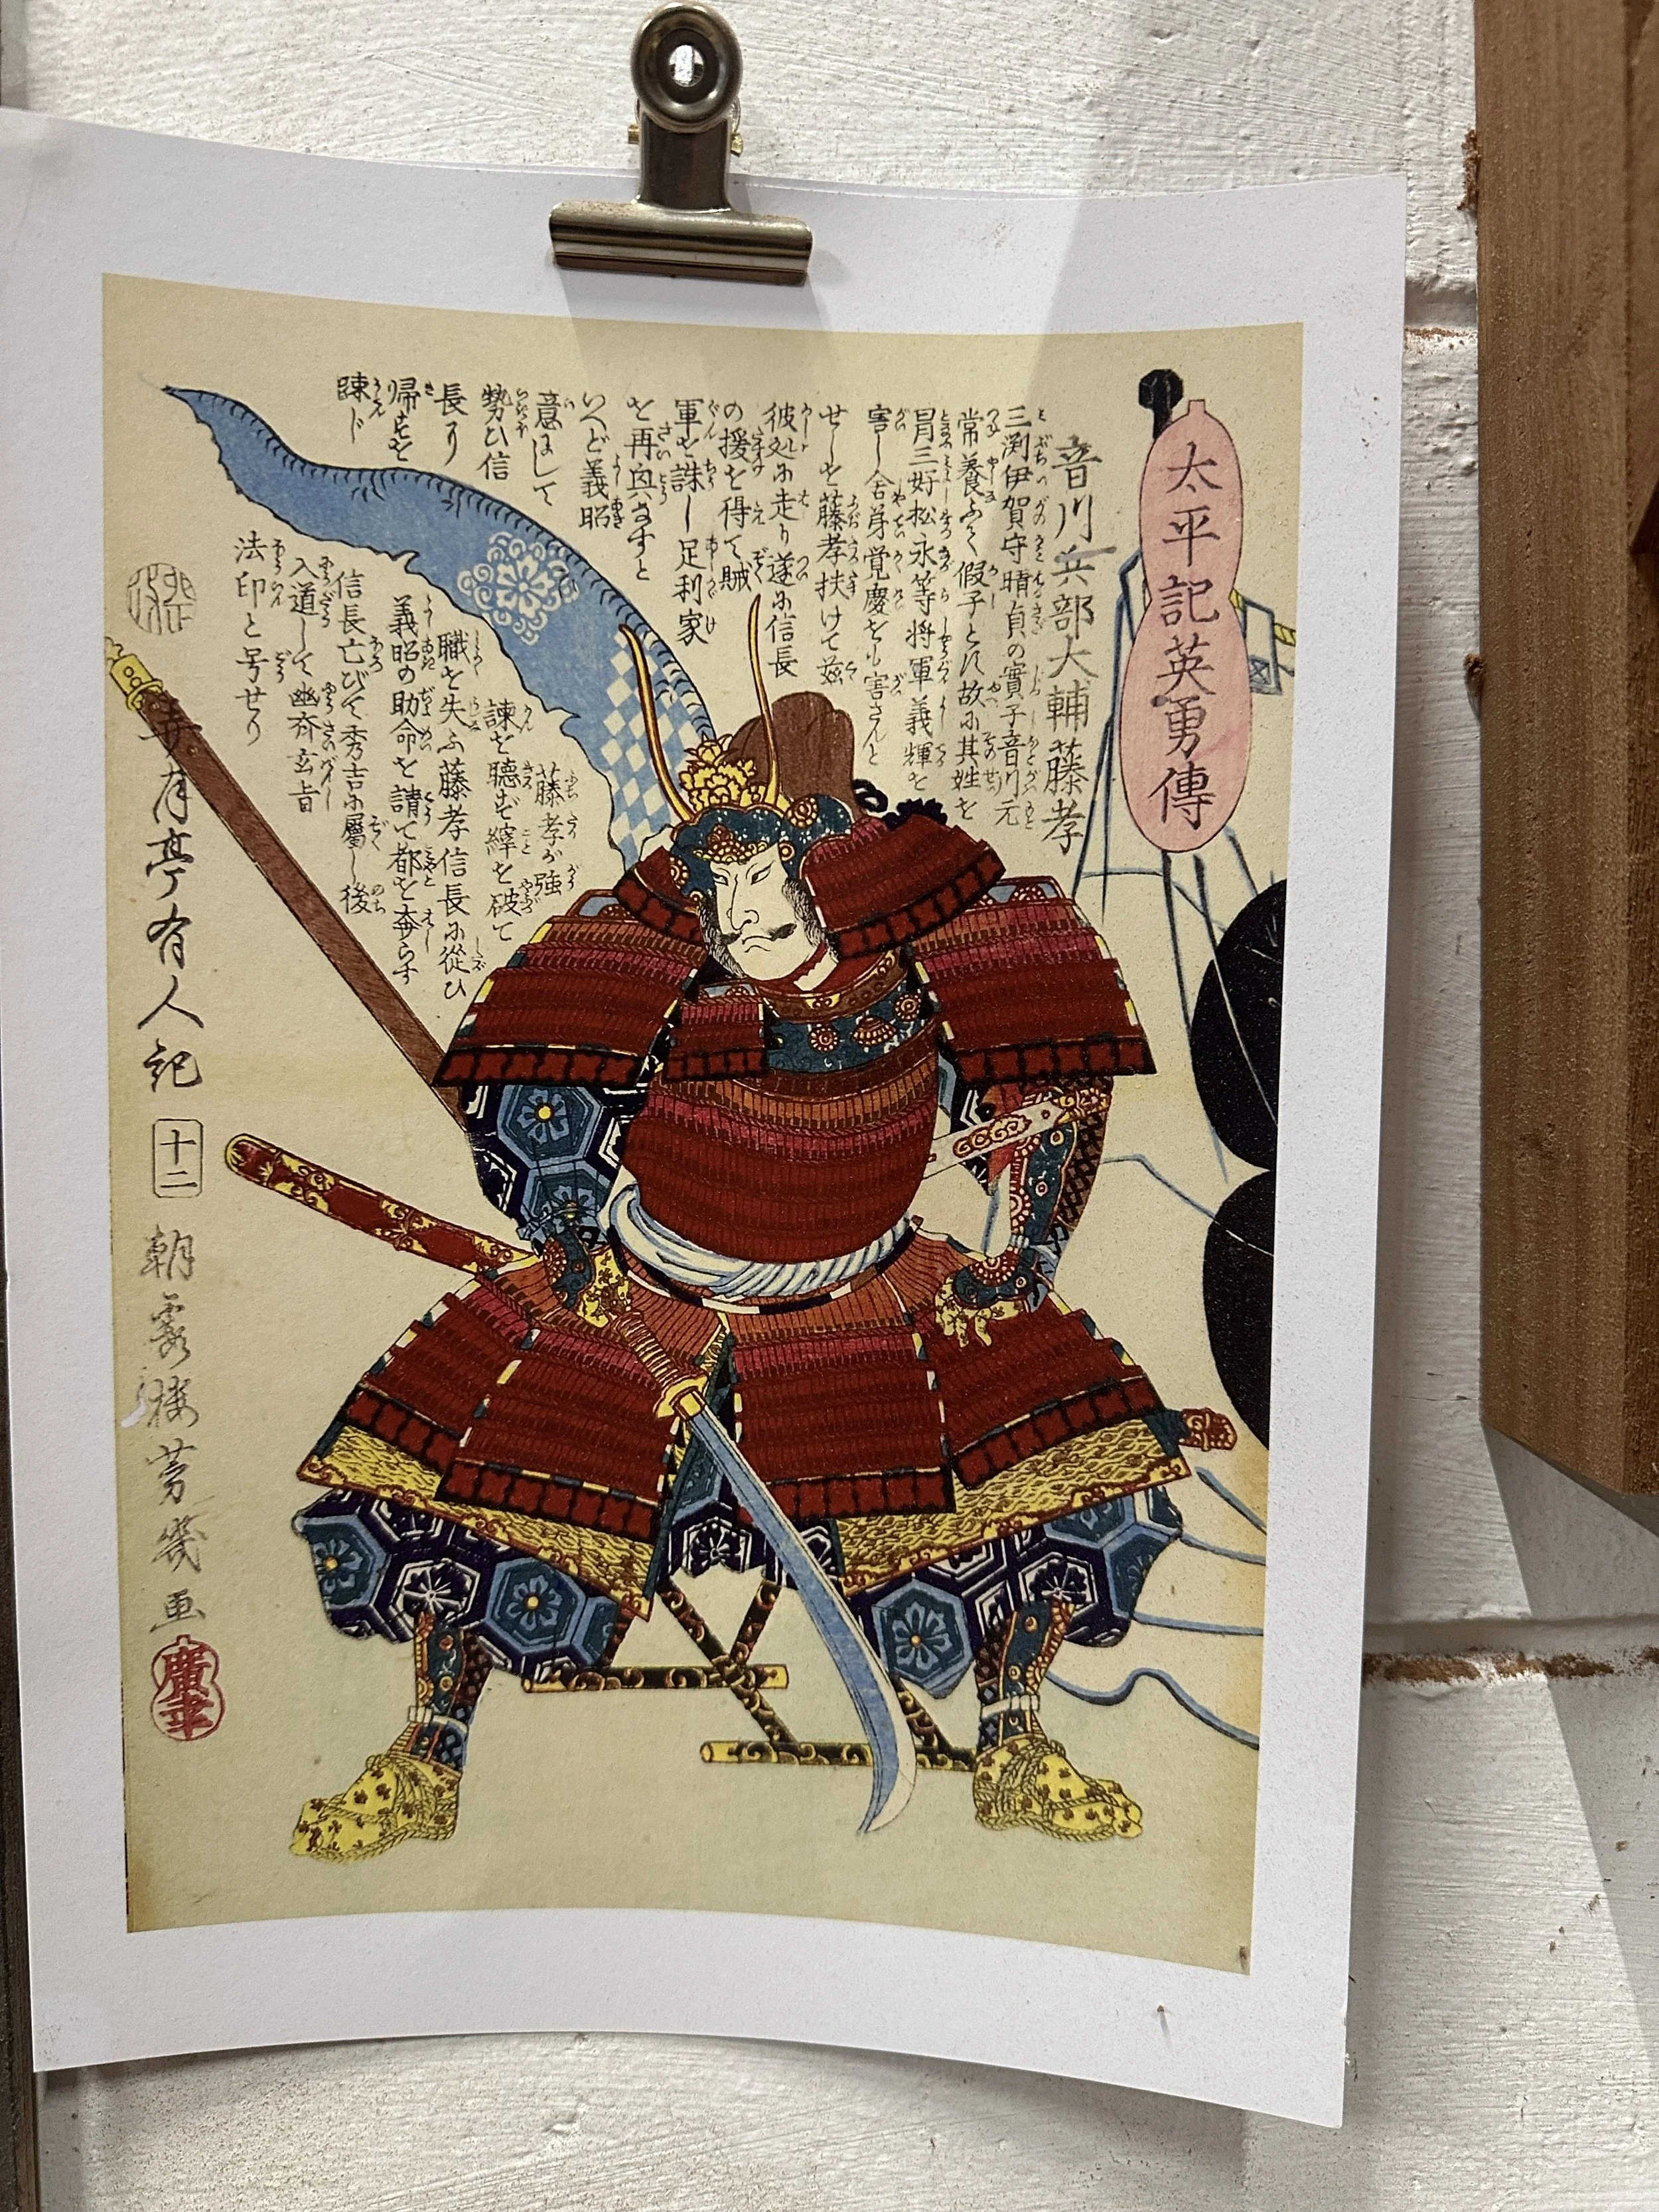 太平記英勇傳
音川兵部大輔藤孝
三渕伊賀守晴貞の實子音川元
常養ふて假子とス故に其姓を
冒三好松永等将軍義輝を
害し舎弟覚慶をも害さんと
せしを藤孝扶けて
彼処に走り遂に信長
の援を得て賊
軍を誅し足利家
を再興なすと
いへど義昭
意
勢ひ信
長り
帰を
諫
藤孝が強
諫を聴ず繹を破て
職を失ふ藤孝信長に從ひ
義昭の助命を請て都を去らす
信長亡びて秀吉に屬し後
入道して幽斉玄旨
法印と号せり
月亭有人記
十二
朝霞楼芳幾画
廣幸